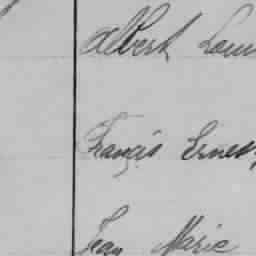 Albert Loui
François Ernest
Jean Marie